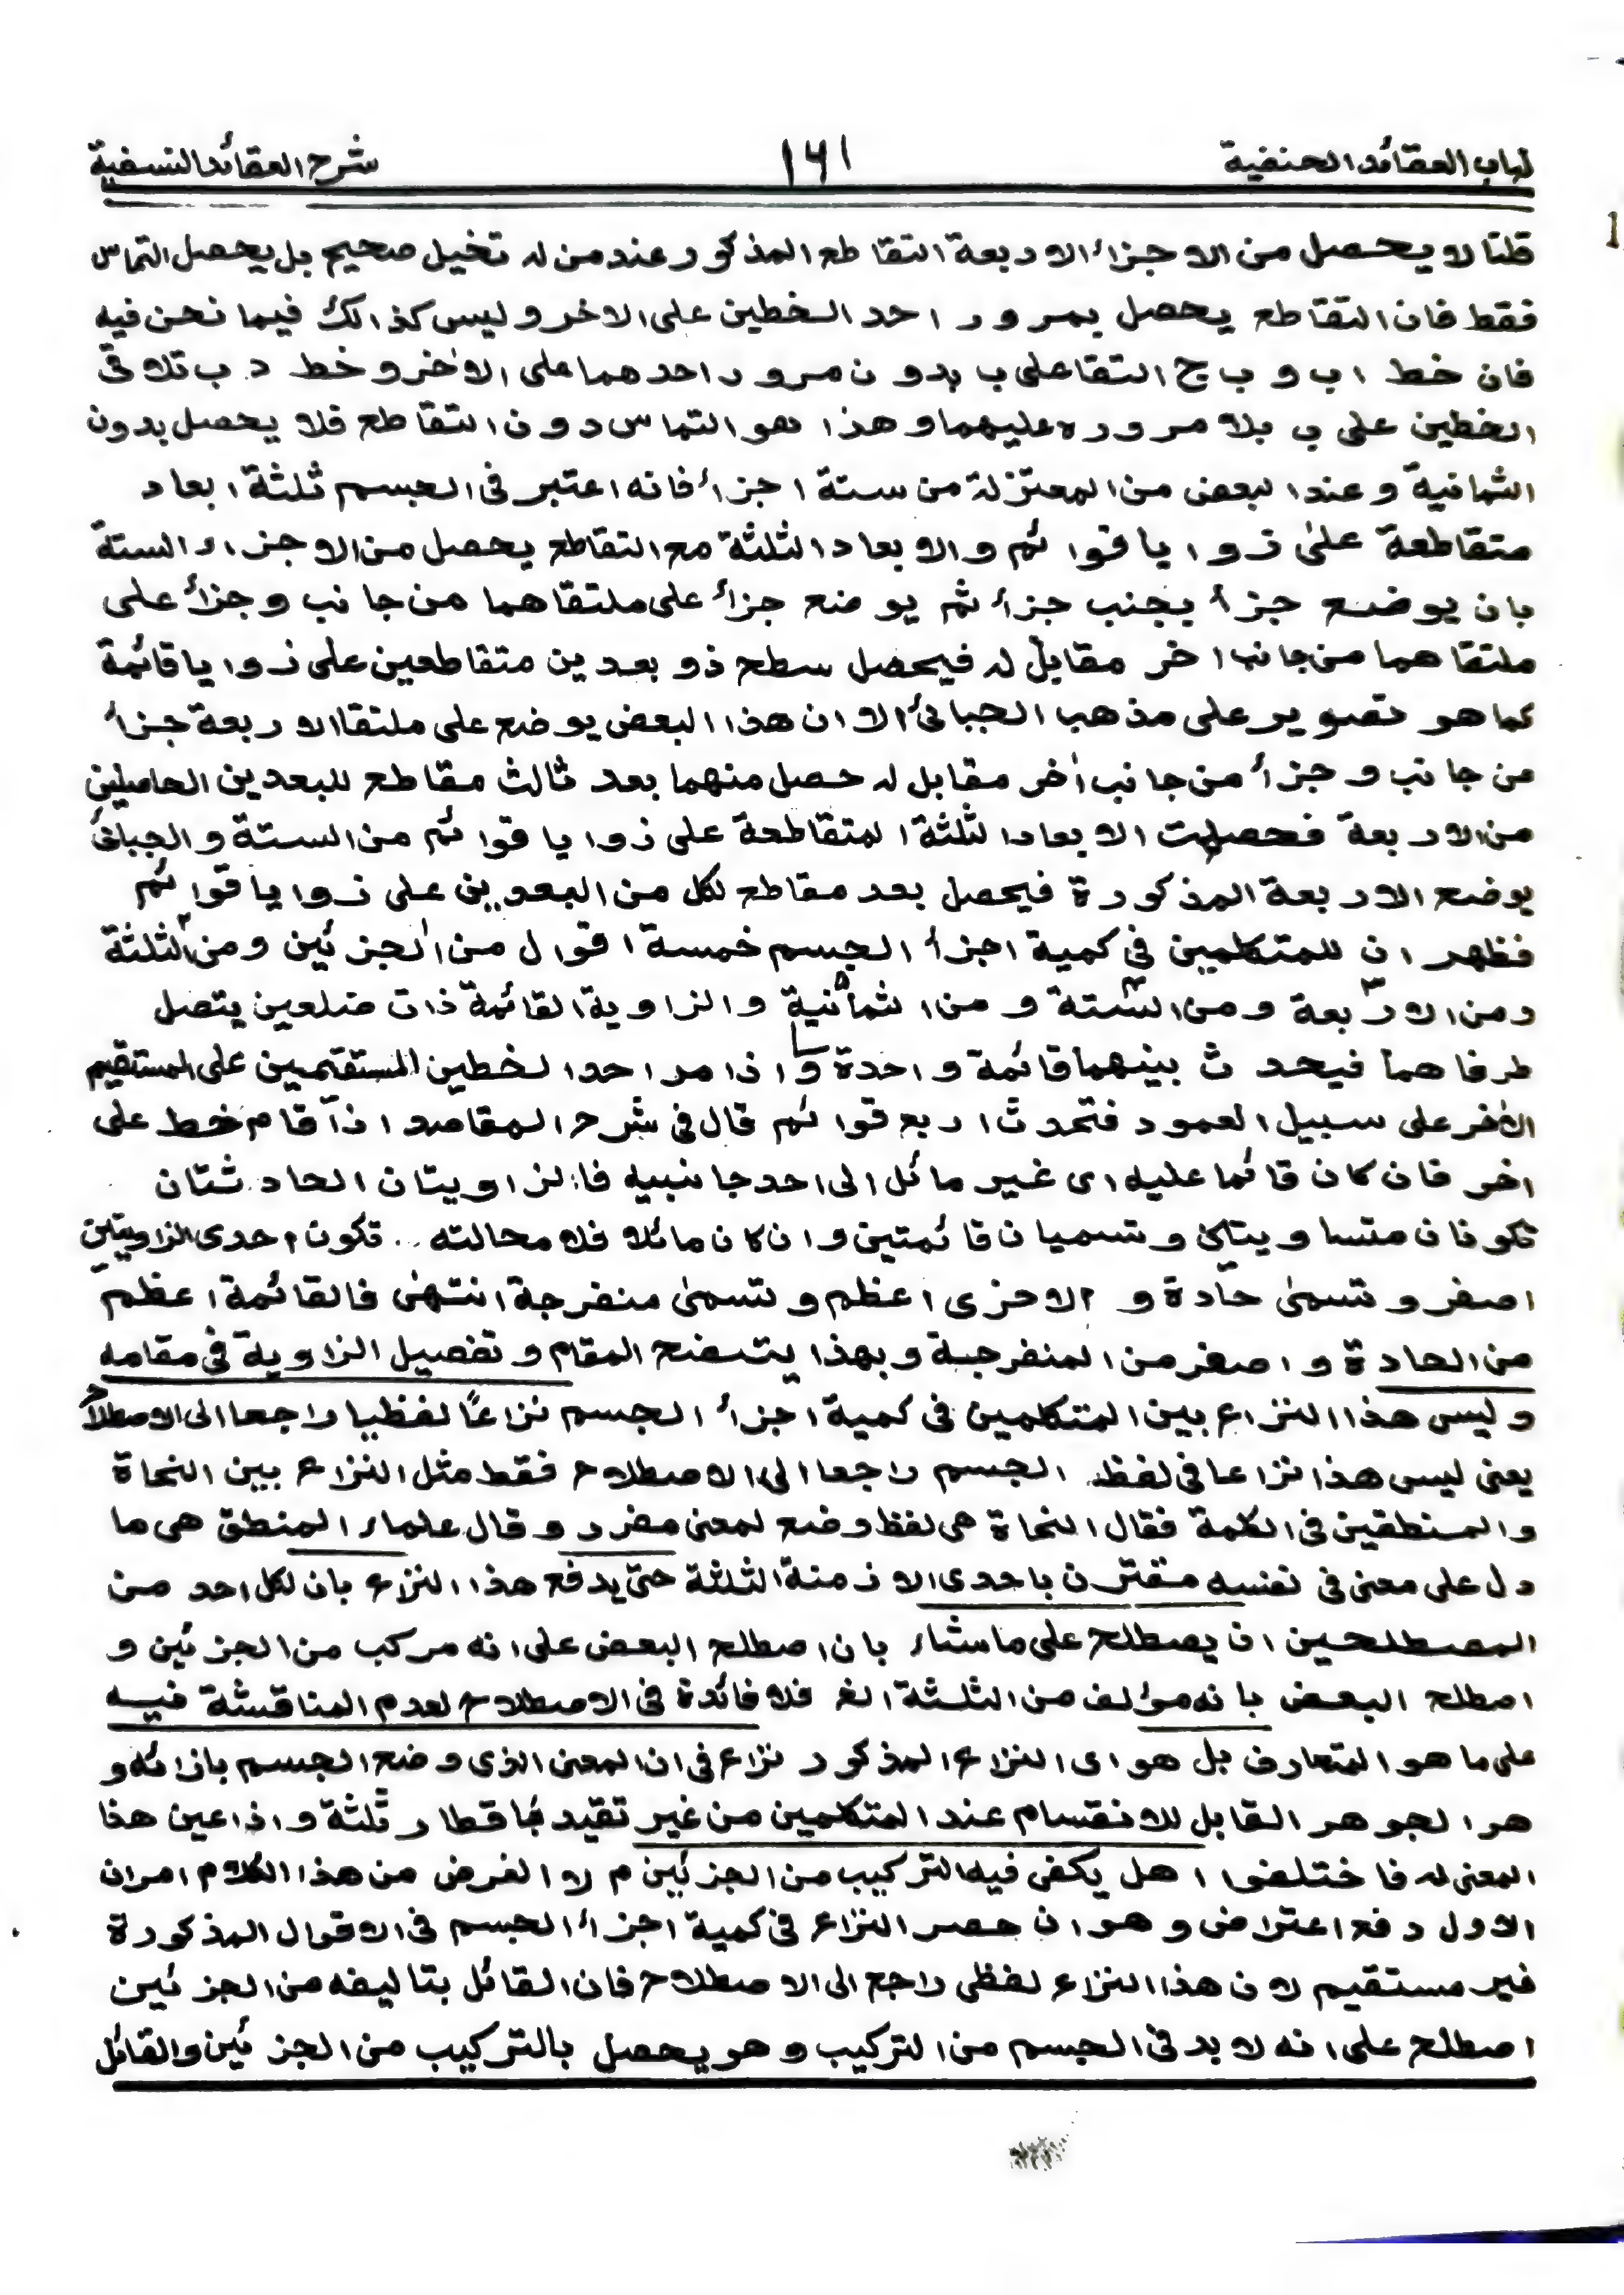 لباب العقائد الحنفية ١٦١ شرح العقائد النسفية
قلنا لا يحصل من الاجزاء الاربعة التقاطع المذكور عند من له تخيل صحيح بل يحصل التماس
فقط فان التقاطع يحصل بمرور احد الخطين على الاخر وليس كذالك فيما نحن فيه
فان خط ا ب و ب ج التقا على ب بدون مرور احدهما على الاٰخر و خط د ب تلاقى
الخطين على ب بلا مروره عليهما وهذا هو التماس دون التقاطع فلا يحصل بدون
الثمانية وعند البعض من المعتزلة من ستة اجزاء فانه اعتبر فى الجسم ثلثة ابعاد
متقاطعة علىٰ زوايا قوائم والابعاد الثلثة مع التقاطع يحصل من الاجزاء الستة
بان يوضع جزأ بجنب جزأ ثم يوضع جزأ على ملتقاهما من جانب وجزأ على
ملتقاهما من جانب اخر مقابل له فيحصل سطح ذو بعدين متقاطعين على زوايا قائمة
كما هو تصوير على مذهب الجبائى الا ان هذا البعض يوضع على ملتقا الاربعة جزأ
من جانب وجزأ من جانب اٰخر مقابل له حصل منهما بعد ثالث مقاطع للبعدين الحاصلين
من الاربعة فحصلت الابعاد الثلثة المتقاطعة على زوايا قوائم من الستة والجبائى
يوضع الاربعة المذكورة فيحصل بعد مقاطع لكل من البعدين على زوايا قوائم
فظهر ان للمتكلمين فى كمية اجزأ الجسم خمسة اقوال من الجزئين ومن الثلثة
ومن الاربعة ومن الستة ومن الثمانية والزاوية القائمة ذات ضلعين يتصل
طرفاهما فيحدث بينهما قائمة واحدة واذا مر احد الخطين المستقيمين على المستقيم
الاٰخر على سبيل العمود فتحدث اربع قوائم قال فى شرح المقاصد اذا قام خط على
اخر فان كان قائما عليه اى غير مائل الى احد جانبيه فالزاويتان الحادثتان
تكونان متساويتان وتسميان قائمتين وان كان مائلا فلا محالته .. تكون احدى الزاويتين
اصغر وتسمىٰ حادة و الاخرى اعظم وتسمىٰ منفرجة انتهىٰ فالقائمة اعظم
من الحادة و اصغر من المنفرجة وبهذا يتضح المقام وتفصيل الزاوية فى مقامه
وليس هذا النزاع بين المتكلمين فى كمية اجزأ الجسم نزاعًا لفظيا راجعا الى الاصطلاح
يعنى ليس هذا نزاعا فى لفظ الجسم راجعا الى الاصطلاح فقط مثل النزاع بين النحاة
والمنطقين فى الكلمة فقال النحاة هى لفظ وضع لمعنى مفرد وقال علماء المنطق هى ما
دل على معنى فى نفسه مقترن باحدى الازمنة الثلثة حتى يدفع هذا النزاع بان لكل احد من
المصطلحين ان يصطلح على ما شاء بان اصطلح البعض على انه مركب من الجزئين و
اصطلح البعض بانه مؤلف من الثلثة الخ فلا فائدة فى الاصطلاح لعدم المناقشة فيه
على ما هو المتعارف بل هو اى النزاع المذكور نزاع فى ان المعنى الذى وضع الجسم بازائه و
هو الجوهر القابل للانقسام عند المتكلمين من غير تقيد باقطار ثلثة واذا عين هذا
المعنى له فاختلفوا اهل يكفى فيه التركيب من الجزئين ام لا والغرض من هذا الكلام امران
الاول دفع اعتراض وهو ان حصر النزاع فى كمية اجزأ الجسم فى الاقوال المذكورة
غير مستقيم لان هذا النزاع لفظى راجع الى الاصطلاح فان القائل بتاليفه من الجزئين
اصطلح على انه لا بد فى الجسم من التركيب وهو يحصل بالتركيب من الجزئين والقائل